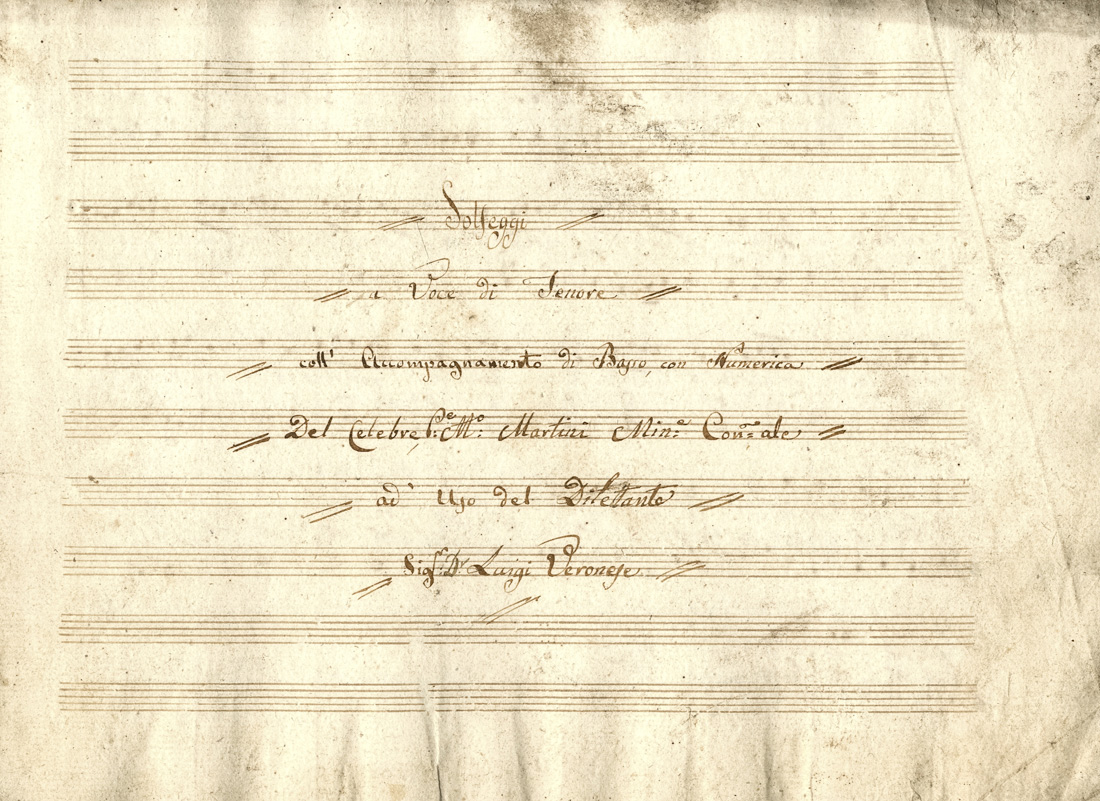 Solfeggi
a Voce di Tenore
coll' Accompagnamento di Basso, con Numerica
Del Celebre P.e M.o Martini Min.e Con.ale
ad' Uso del Dilettante
Sig.r D.r Luigi Veronese